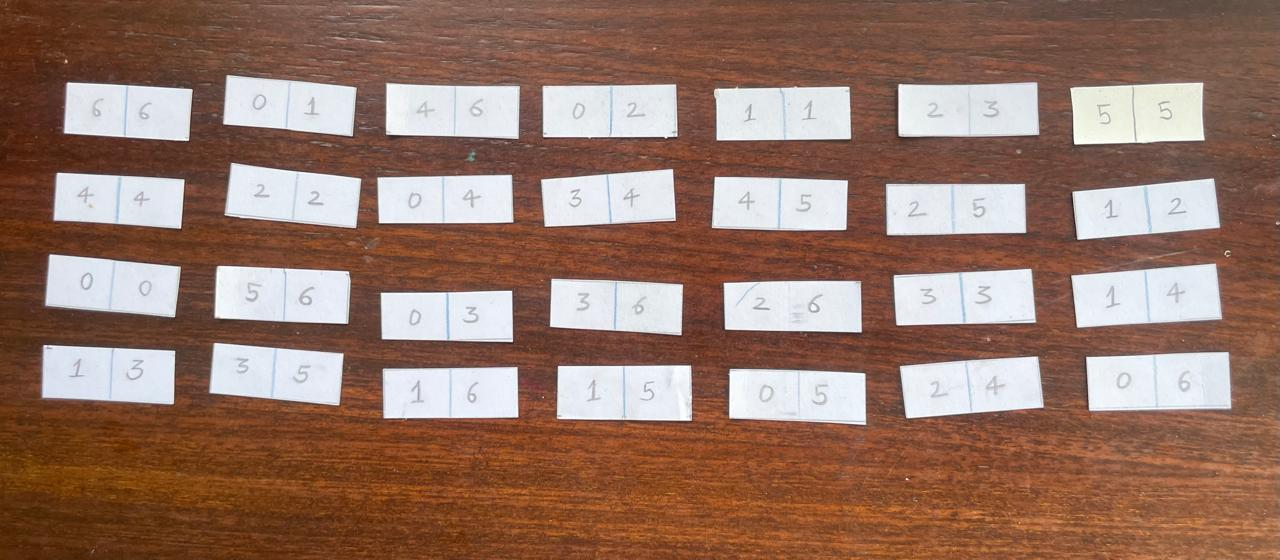 6 6 0 1 4 6 0 2 1 1 2 3 5 5
4 4 2 2 0 4 3 4 4 5 2 5 1 2
0 0 5 6 0 3 3 6 2 6 3 3 1 4
1 3 3 5 1 6 1 5 0 5 2 4 0 6